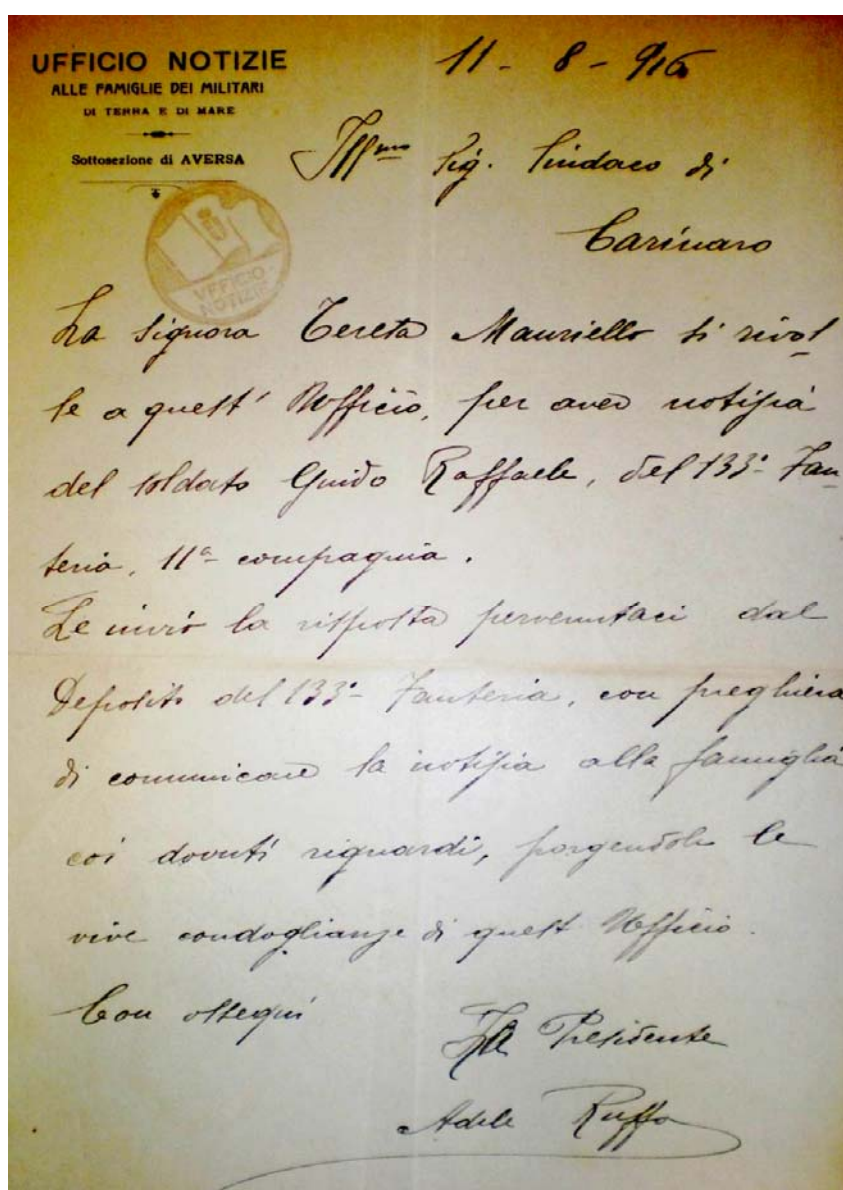 UFFICIO NOTIZIE
ALLE FAMIGLIE DEI MILITARI
DI TERRA E DI MARE
Sottosezione di AVERSA
11 - 8 - 916
Ill.mo Sig. Sindaco di
Carinaro
UFFICIO
NOTIZIE
La Signora Tereta Mauriello si rivol
se a quest' Ufficio, per aver notizia
del soldato Guido Raffaele, del 133° Fan
teria, 11ª compagnia.
Le invio la risposta pervenutaci dal
Deposito del 133° Fanteria, con preghiera
di comunicare la notizia alla famiglia
coi dovuti riguardi, porgendole le
vive condoglianze di quest' Ufficio.
Con ossequi
La Presidente
Adele Ruffo